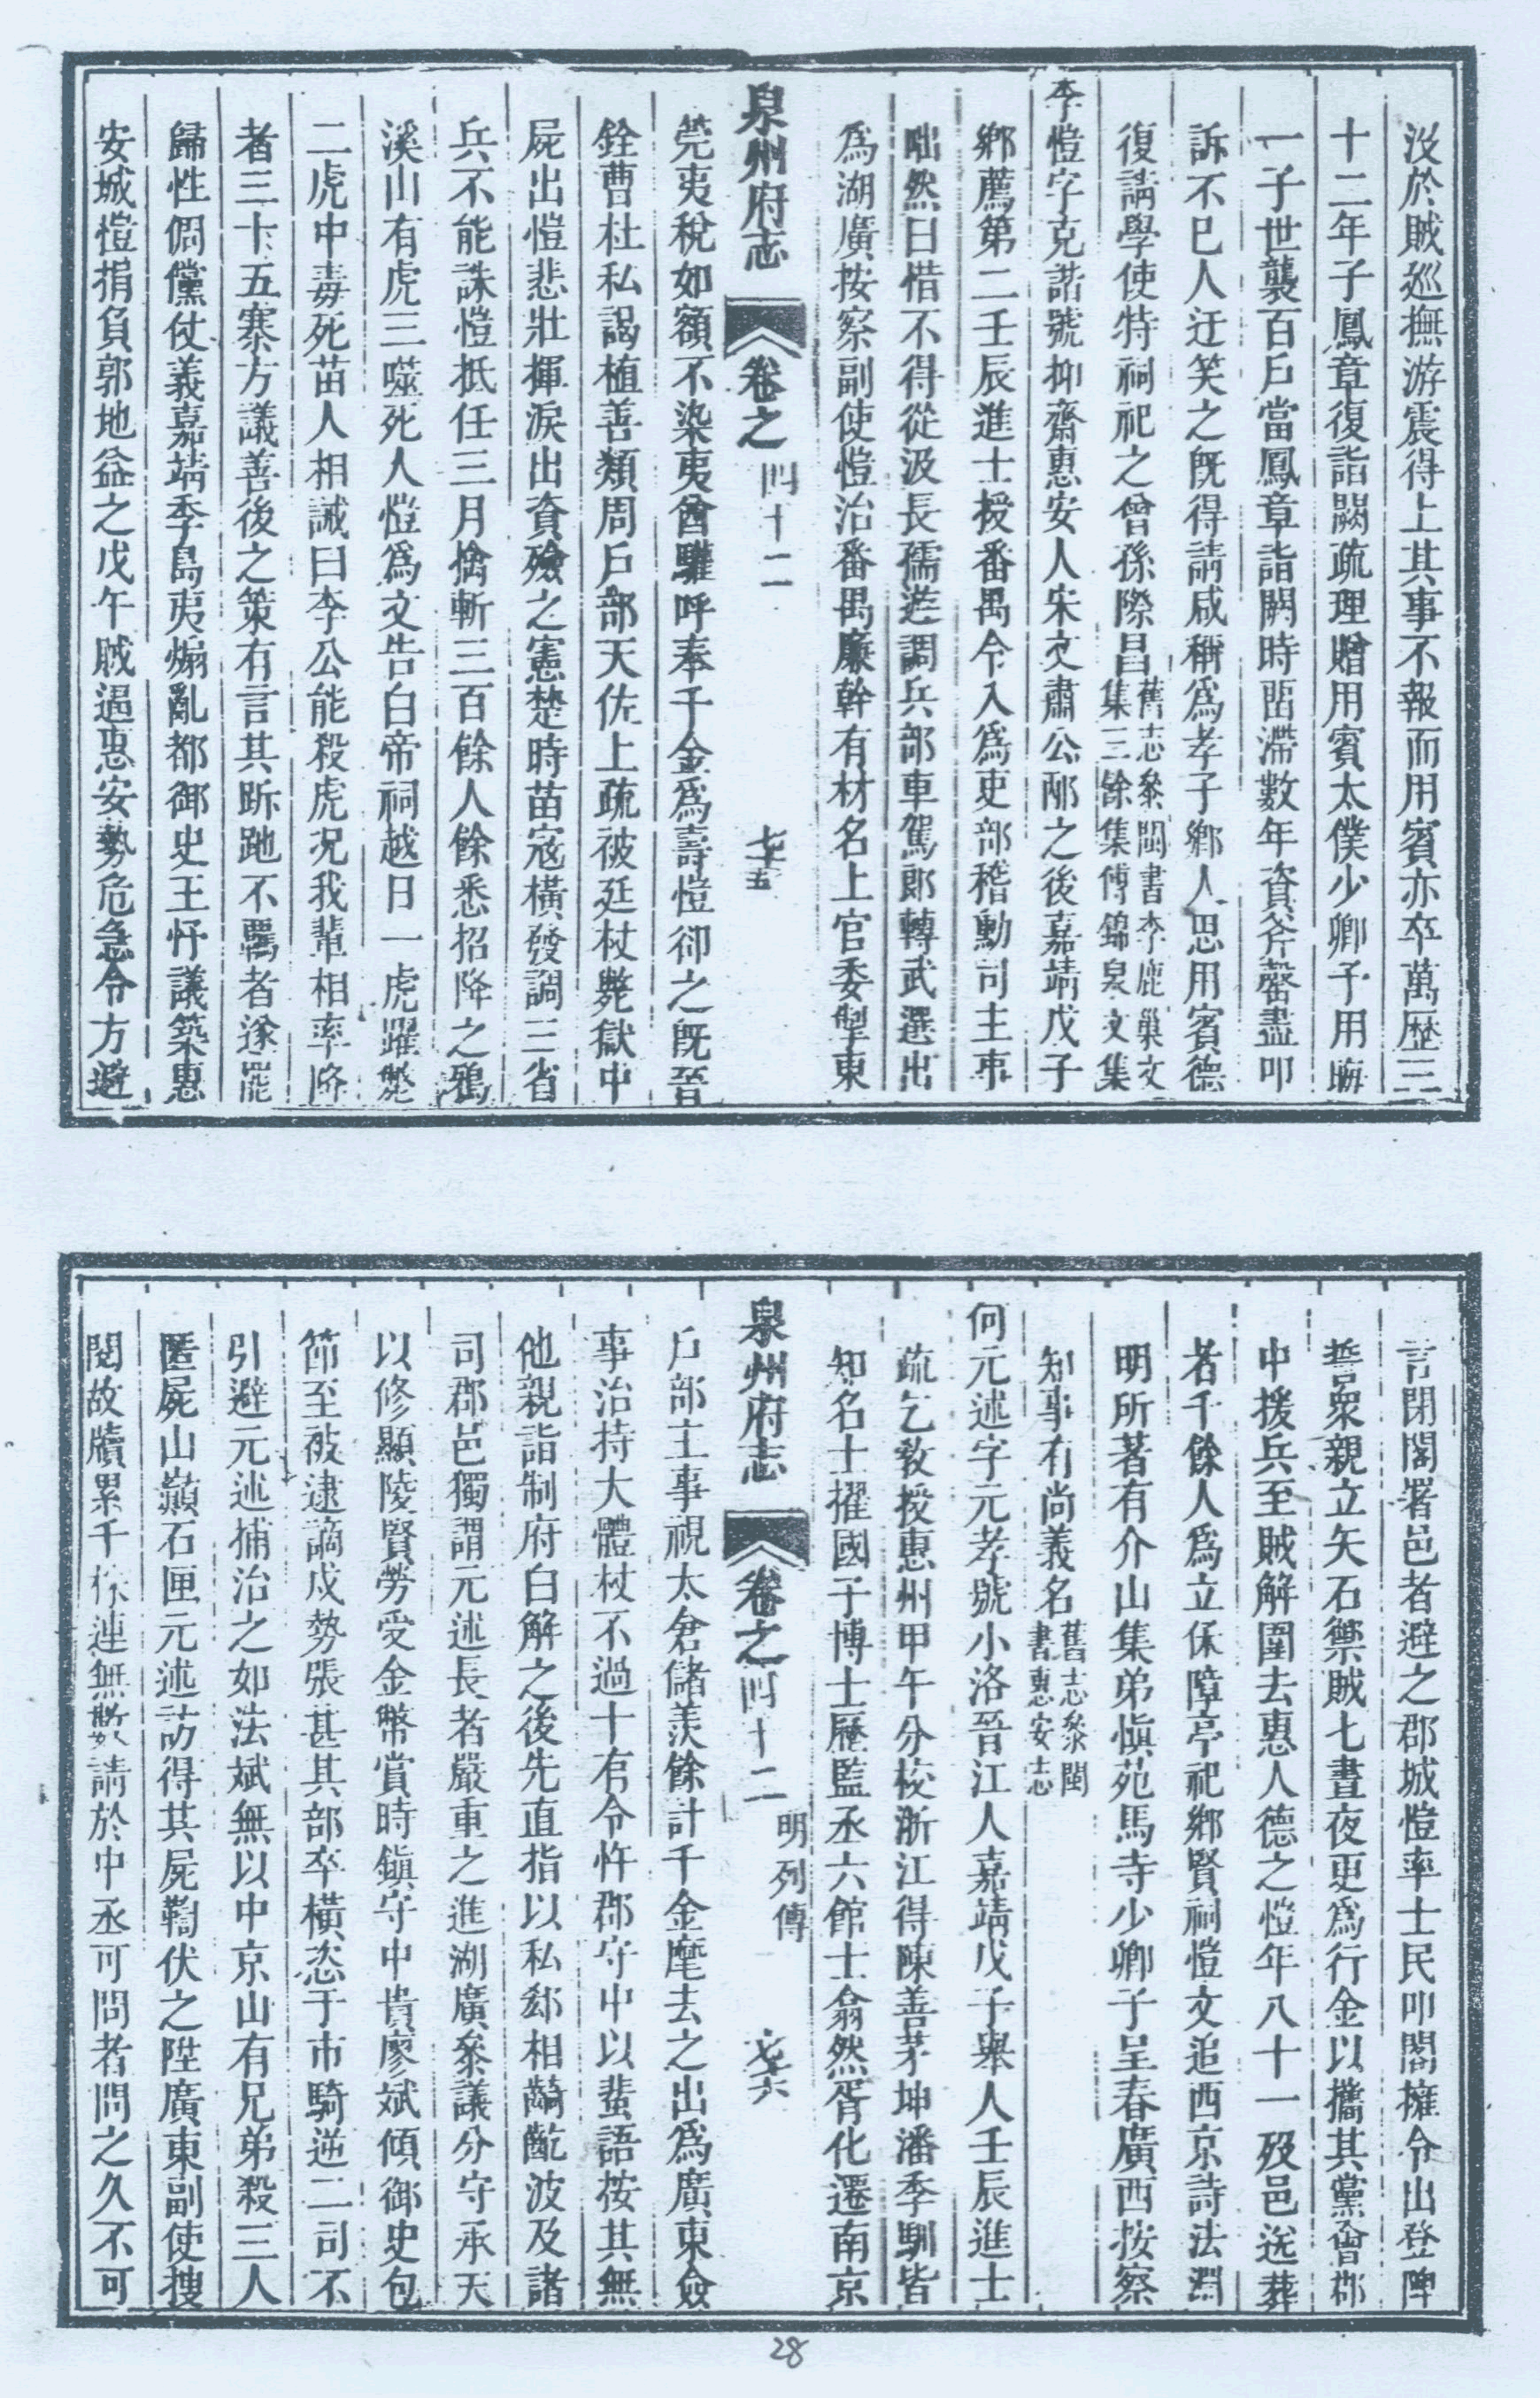 沒於賊巡撫游震得上其事不報而用賓亦卒萬歷三
十二年子鳳章復詣闕疏理贈用賓太僕少卿子用晦
一子世襲百戶當鳳章詣闕時畱滯數年資斧罄盡叩
訴不巳人迂笑之旣得請咸稱爲孝子鄉人思用賓德
復請學使特祠祀之曾孫際昌舊志叅閩書李鹿巢文
集三餘集傅錦泉文集
李愷字克諧號抑齋惠安人宋文肅公邴之後嘉靖戊子
鄉薦第二壬辰進士授番禺令入爲吏部稽勳司主事
咄然曰惜不得從汲長孺遊調兵部車駕郎轉武選出
爲湖廣按察副使愷治番禺廉幹有材名上官委犁東
泉州府志
卷之四十二
七十五
莞夷稅如額不染夷酋驩呼奉千金爲壽愷卻之旣晉
銓曹杜私謁植善類周戶部天佐上疏被廷杖斃獄中
屍出愷悲壯揮淚出資殮之憲楚時苗寇橫發調三省
兵不能誅愷抵任三月擒斬三百餘人餘悉招降之鴉
溪山有虎三噬死人愷爲文告白帝祠越日一虎躍斃
二虎中毒死苗人相誡曰李公能殺虎况我輩相率降
者三十五寨方議善後之策有言其跅跑不羈者遂罷
歸性倜儻仗義嘉靖季島夷煽亂都御史王忬議築惠
安城愷捐負郭地益之戊午賊逼惠安勢危急令方避
言閉閣署邑者避之郡城愷率士民叩閣擁令出登陴
誓衆親立矢石禦賊七晝夜更爲行金以攜其黨會郡
中援兵至賊解圍去惠人德之愷年八十一歿邑送葬
者千餘人爲立保障亭祀鄉賢祠愷文追西京詩法淵
明所著有介山集弟愼苑馬寺少卿子呈春廣西按察
知事有尚義名舊志叅閩
書惠安志
何元述字元孝號小洛晉江人嘉靖戊子舉人壬辰進士
疏乞敎授惠州甲午分校浙江得陳善茅坤潘季馴皆
知名士擢國子博士歷監丞六館士翕然胥化遷南京
泉州府志
卷之四十二
明列傳
七十六
戶部主事視太倉儲羨餘計千金麾去之出爲廣東僉
事治持大體杖不過十有令忤郡守中以蜚語按其無
他親詣制府白解之後先直指以私郄相齮齕波及諸
司郡邑獨謂元述長者嚴重之進湖廣叅議分守承天
以修顯陵賢勞受金幣賞時鎭守中貴廖斌傾御史包
節至被逮謫戍勢張甚其部卒橫恣于市騎逆二司不
引避元述捕治之如法斌無以中京山有兄弟殺三人
匿屍山巓石匣元述訪得其屍鞫伏之陞廣東副使搜
閱故牘累千條連無數請於中丞可問者問之久不可
28